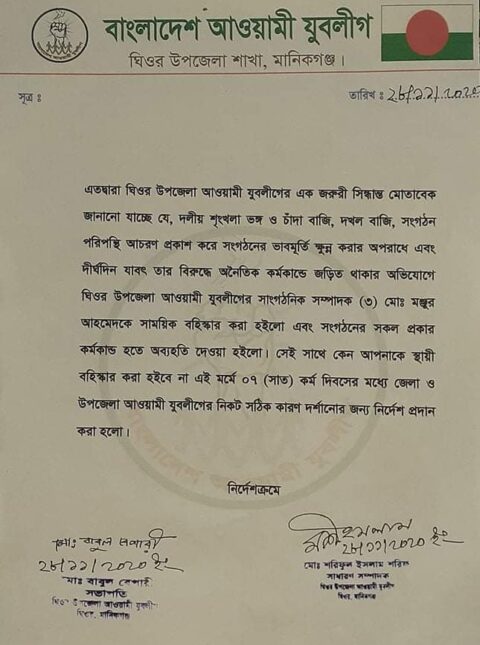 বাংলাদেশ আওয়ামী যুবলীগ
ঘিওর উপজেলা শাখা, মানিকগঞ্জ।
সূত্র ঃ
তারিখ ঃ ২৮/১১/২০২০
এতদ্বারা ঘিওর উপজেলা আওয়ামী যুবলীগের এক জরুরী সিদ্ধান্ত মোতাবেক
জানানো যাচ্ছে যে, দলীয় শৃংখলা ভঙ্গ ও চাঁদা বাজি, দখল বাজি, সংগঠন
পরিপন্থি আচরণ প্রকাশ করে সংগঠনের ভাবমূর্তি ক্ষুন্ন করার অপরাধে এবং
দীর্ঘদিন যাবৎ তার বিরুদ্ধে অনৈতিক কর্মকান্ডে জড়িত থাকার অভিযোগে
ঘিওর উপজেলা আওয়ামী যুবলীগের সাংগঠনিক সম্পাদক (৩) মোঃ মঞ্জুর
আহমেদকে সাময়িক বহিস্কার করা হইলো এবং সংগঠনের সকল প্রকার
কর্মকান্ড হতে অব্যহতি দেওয়া হইলো। সেই সাথে কেন আপনাকে স্থায়ী
বহিস্কার করা হইবে না এই মর্মে ০৭ (সাত) কর্ম দিবসের মধ্যে জেলা ও
উপজেলা আওয়ামী যুবলীগের নিকট সঠিক কারণ দর্শানোর জন্য নির্দেশ প্রদান
করা হলো।
নির্দেশক্রমে
মোঃ বাবুল বেপারী
২৮/১১/২০২০ ইং
মোঃ বাবুল বেপারী
সভাপতি
ঘিওর উপজেলা আওয়ামী যুবলীগ
ঘিওর, মানিকগঞ্জ
২৮/১১/২০২০ ইং
মোঃ শরিফুল ইসলাম শরিফ
সাধারণ সম্পাদক
ঘিওর উপজেলা আওয়ামী যুবলীগ
ঘিওর, মানিকগঞ্জ